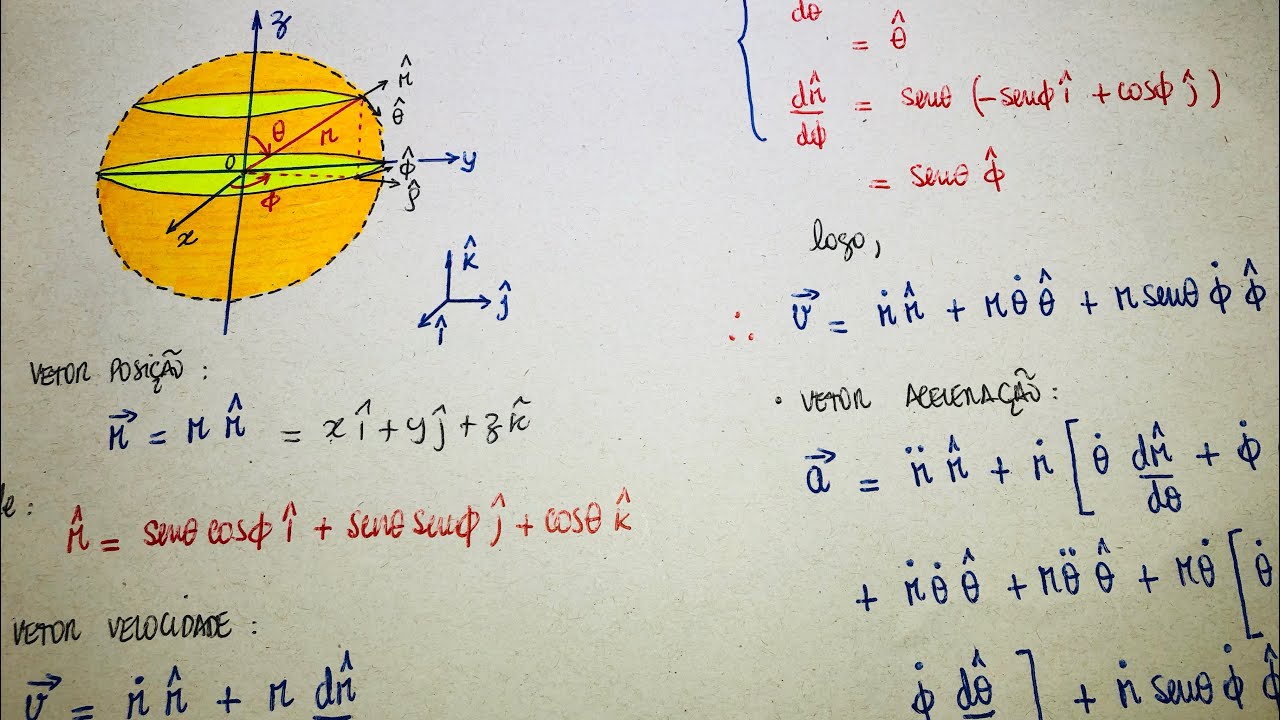 z
r̂
θ̂
θ
r
O
y
φ̂
ρ̂
φ
x
k̂
ĵ
î
VETOR POSIÇÃO:
r⃗ = r r̂ = x î + y ĵ + z k̂
de:
r̂ = senθ cosφ î + senθ senφ ĵ + cosθ k̂
VETOR VELOCIDADE:
v⃗ = ṙ r̂ + r dr̂
dθ
= θ̂
dr̂/dφ = senθ (-senφ î + cosφ ĵ)
= senθ φ̂
logo,
∴ v⃗ = ṙ r̂ + r θ̇ θ̂ + r senθ φ̇ φ̂
• VETOR ACELERAÇÃO:
a⃗ = r̈ r̂ + ṙ [ θ̇ dr̂/dθ + φ̇
+ ṙ θ̇ θ̂ + r θ̈ θ̂ + r θ̇ [ θ̇
φ̇ dθ̂ ] + ṙ senθ φ̇ φ̂